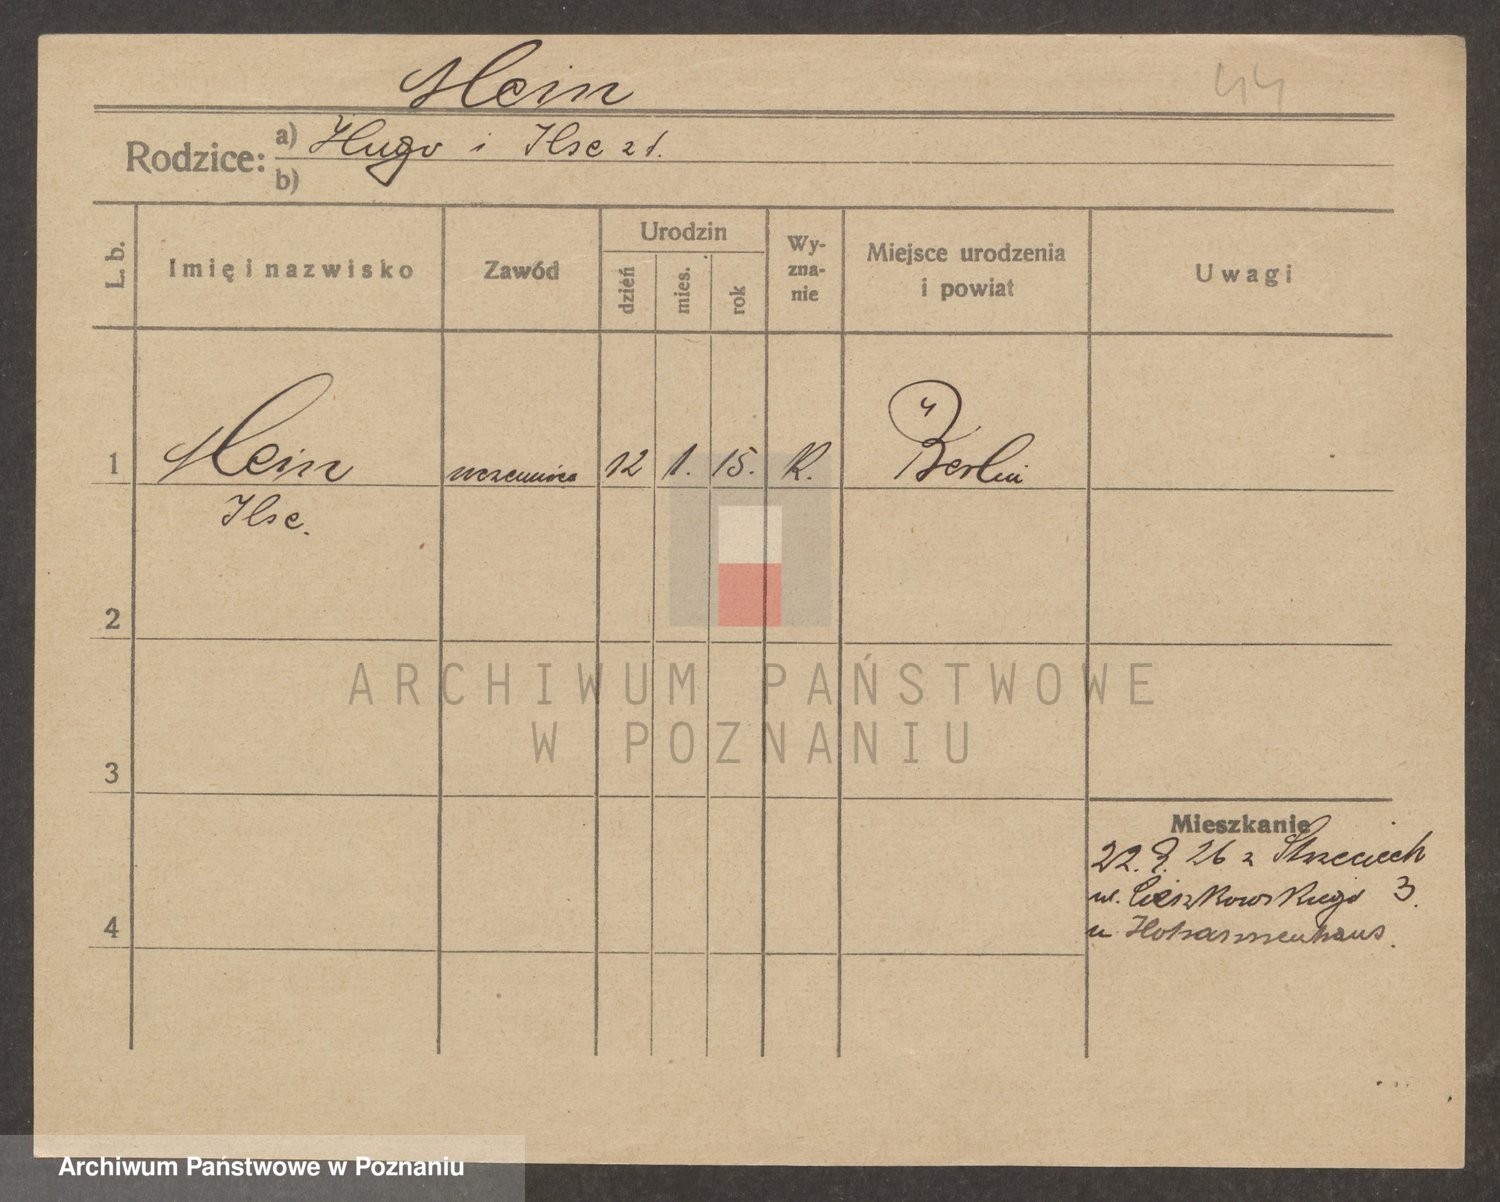 44
Hein
Rodzice: a) Hugo i Ilse zd.
b)
L. b. Imię i nazwisko Zawód Urodzin dzień mies. rok Wy-zna-nie Miejsce urodzenia i powiat Uwagi
1 Hein uczennica 12 1. 15. K. Berlin
Ilse.
2
ARCHIWUM PAŃSTWOWE
W POZNANIU
3
Mieszkanie
22. 26 z
4 ul. Cieszkowskiego 3.
u
Archiwum Państwowe w Poznaniu